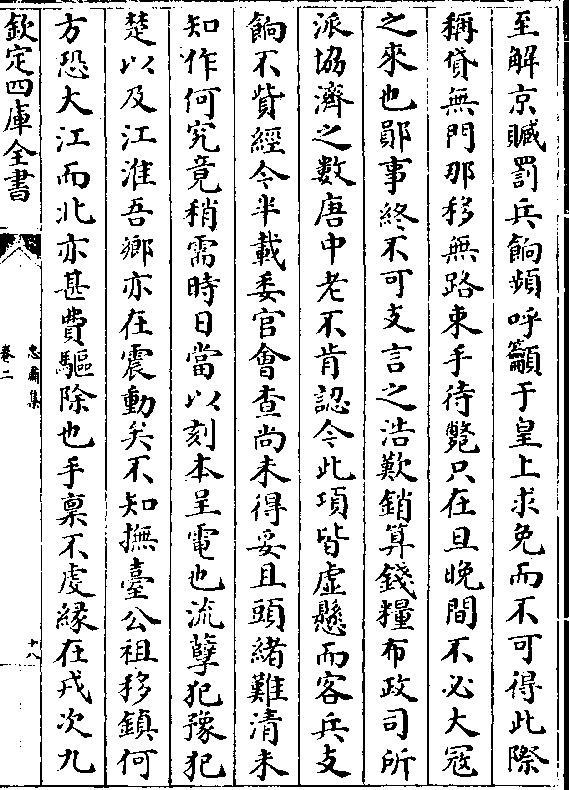 至解京贓罰兵餉頻呼籲于皇上求免而不可得此際
稱貸無門那移無路束手待斃只在旦晚間不必大冦
之來也鄖事終不可支言之浩歎銷算錢糧布政司所
派協濟之數唐中老不肯認令此項皆虛懸而客兵支
餉不貲經今半載委官會查尚未得妥且頭緒難清未
知作何究竟稍需時日當以刻本呈電也流孽犯豫犯
楚以及江淮吾鄉亦在震動矣不知撫臺公祖移鎮何
方恐大江而北亦甚費驅除也手稟不䖍緣在戎次九
欽定四庫全書
忠肅集
卷二
十八